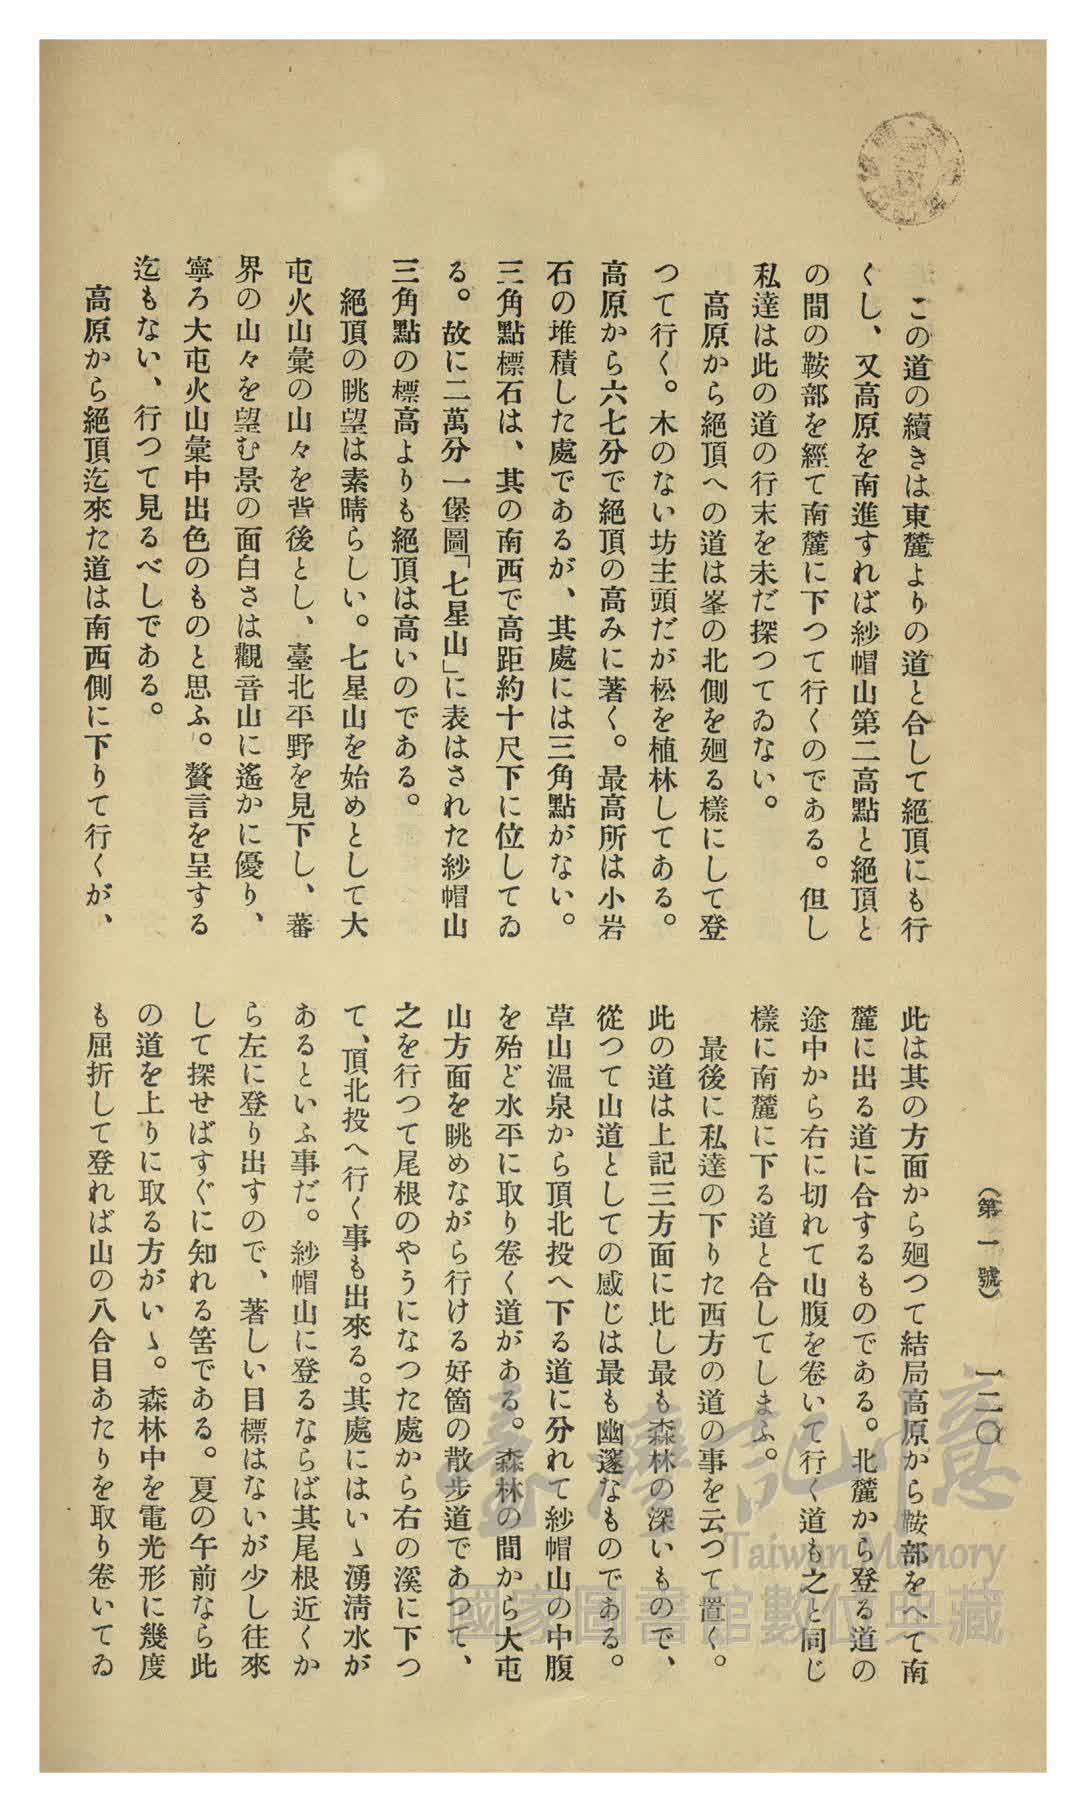 (第一號) 一二〇
この道の續きは東麓よりの道と合して絕頂にも行
くし、又高原を南進すれば紗帽山第二高點と絕頂と
の間の鞍部を經て南麓に下つて行くのである。但し
私達は此の道の行末を未だ探つてゐない。
高原から絕頂への道は峯の北側を廻る樣にして登
つて行く。木のない坊主頭だが松を植林してある。
高原から六七分で絕頂の高みに著く。最高所は小岩
石の堆積した處であるが、其處には三角點がない。
三角點標石は、其の南西で高距約十尺下に位してゐ
る。故に二萬分一堡圖「七星山」に表はされた紗帽山
三角點の標高よりも絕頂は高いのである。
絕頂の眺望は素晴らしい。七星山を始めとして大
屯火山彙の山々を背後とし、臺北平野を見下し、蕃
界の山々を望む景の面白さは觀音山に遙かに優り、
寧ろ大屯火山彙中出色のものと思ふ。贅言を呈する
迄もない、行つて見るべしである。
高原から絕頂迄來た道は南西側に下りて行くが、
此は其の方面から廻つて結局高原から鞍部をへて南
麓に出る道に合するものである。北麓から登る道の
途中から右に切れて山腹を卷いて行く道も之と同じ
樣に南麓に下る道と合してしまふ。
最後に私達の下りた西方の道の事を云つて置く。
此の道は上記三方面に比し最も森林の深いもので、
從つて山道としての感じは最も幽邃なものである。
草山溫泉から頂北投へ下る道に分れて紗帽山の中腹
を殆ど水平に取り卷く道がある。森林の間から大屯
山方面を眺めながら行ける好箇の散步道であつて、
之を行つて尾根のやうになつた處から右の溪に下つ
て、頂北投へ行く事も出來る。其處にはいゝ湧淸水が
あるといふ事だ。紗帽山に登るならば其尾根近くか
ら左に登り出すので、著しい目標はないが少し往來
して探せばすぐに知れる筈である。夏の午前なら此
の道を上りに取る方がいゝ。森林中を電光形に幾度
も屈折して登れば山の八合目あたりを取り卷いてゐ
臺灣記憶
Taiwan Memory
國家圖書館數位典藏